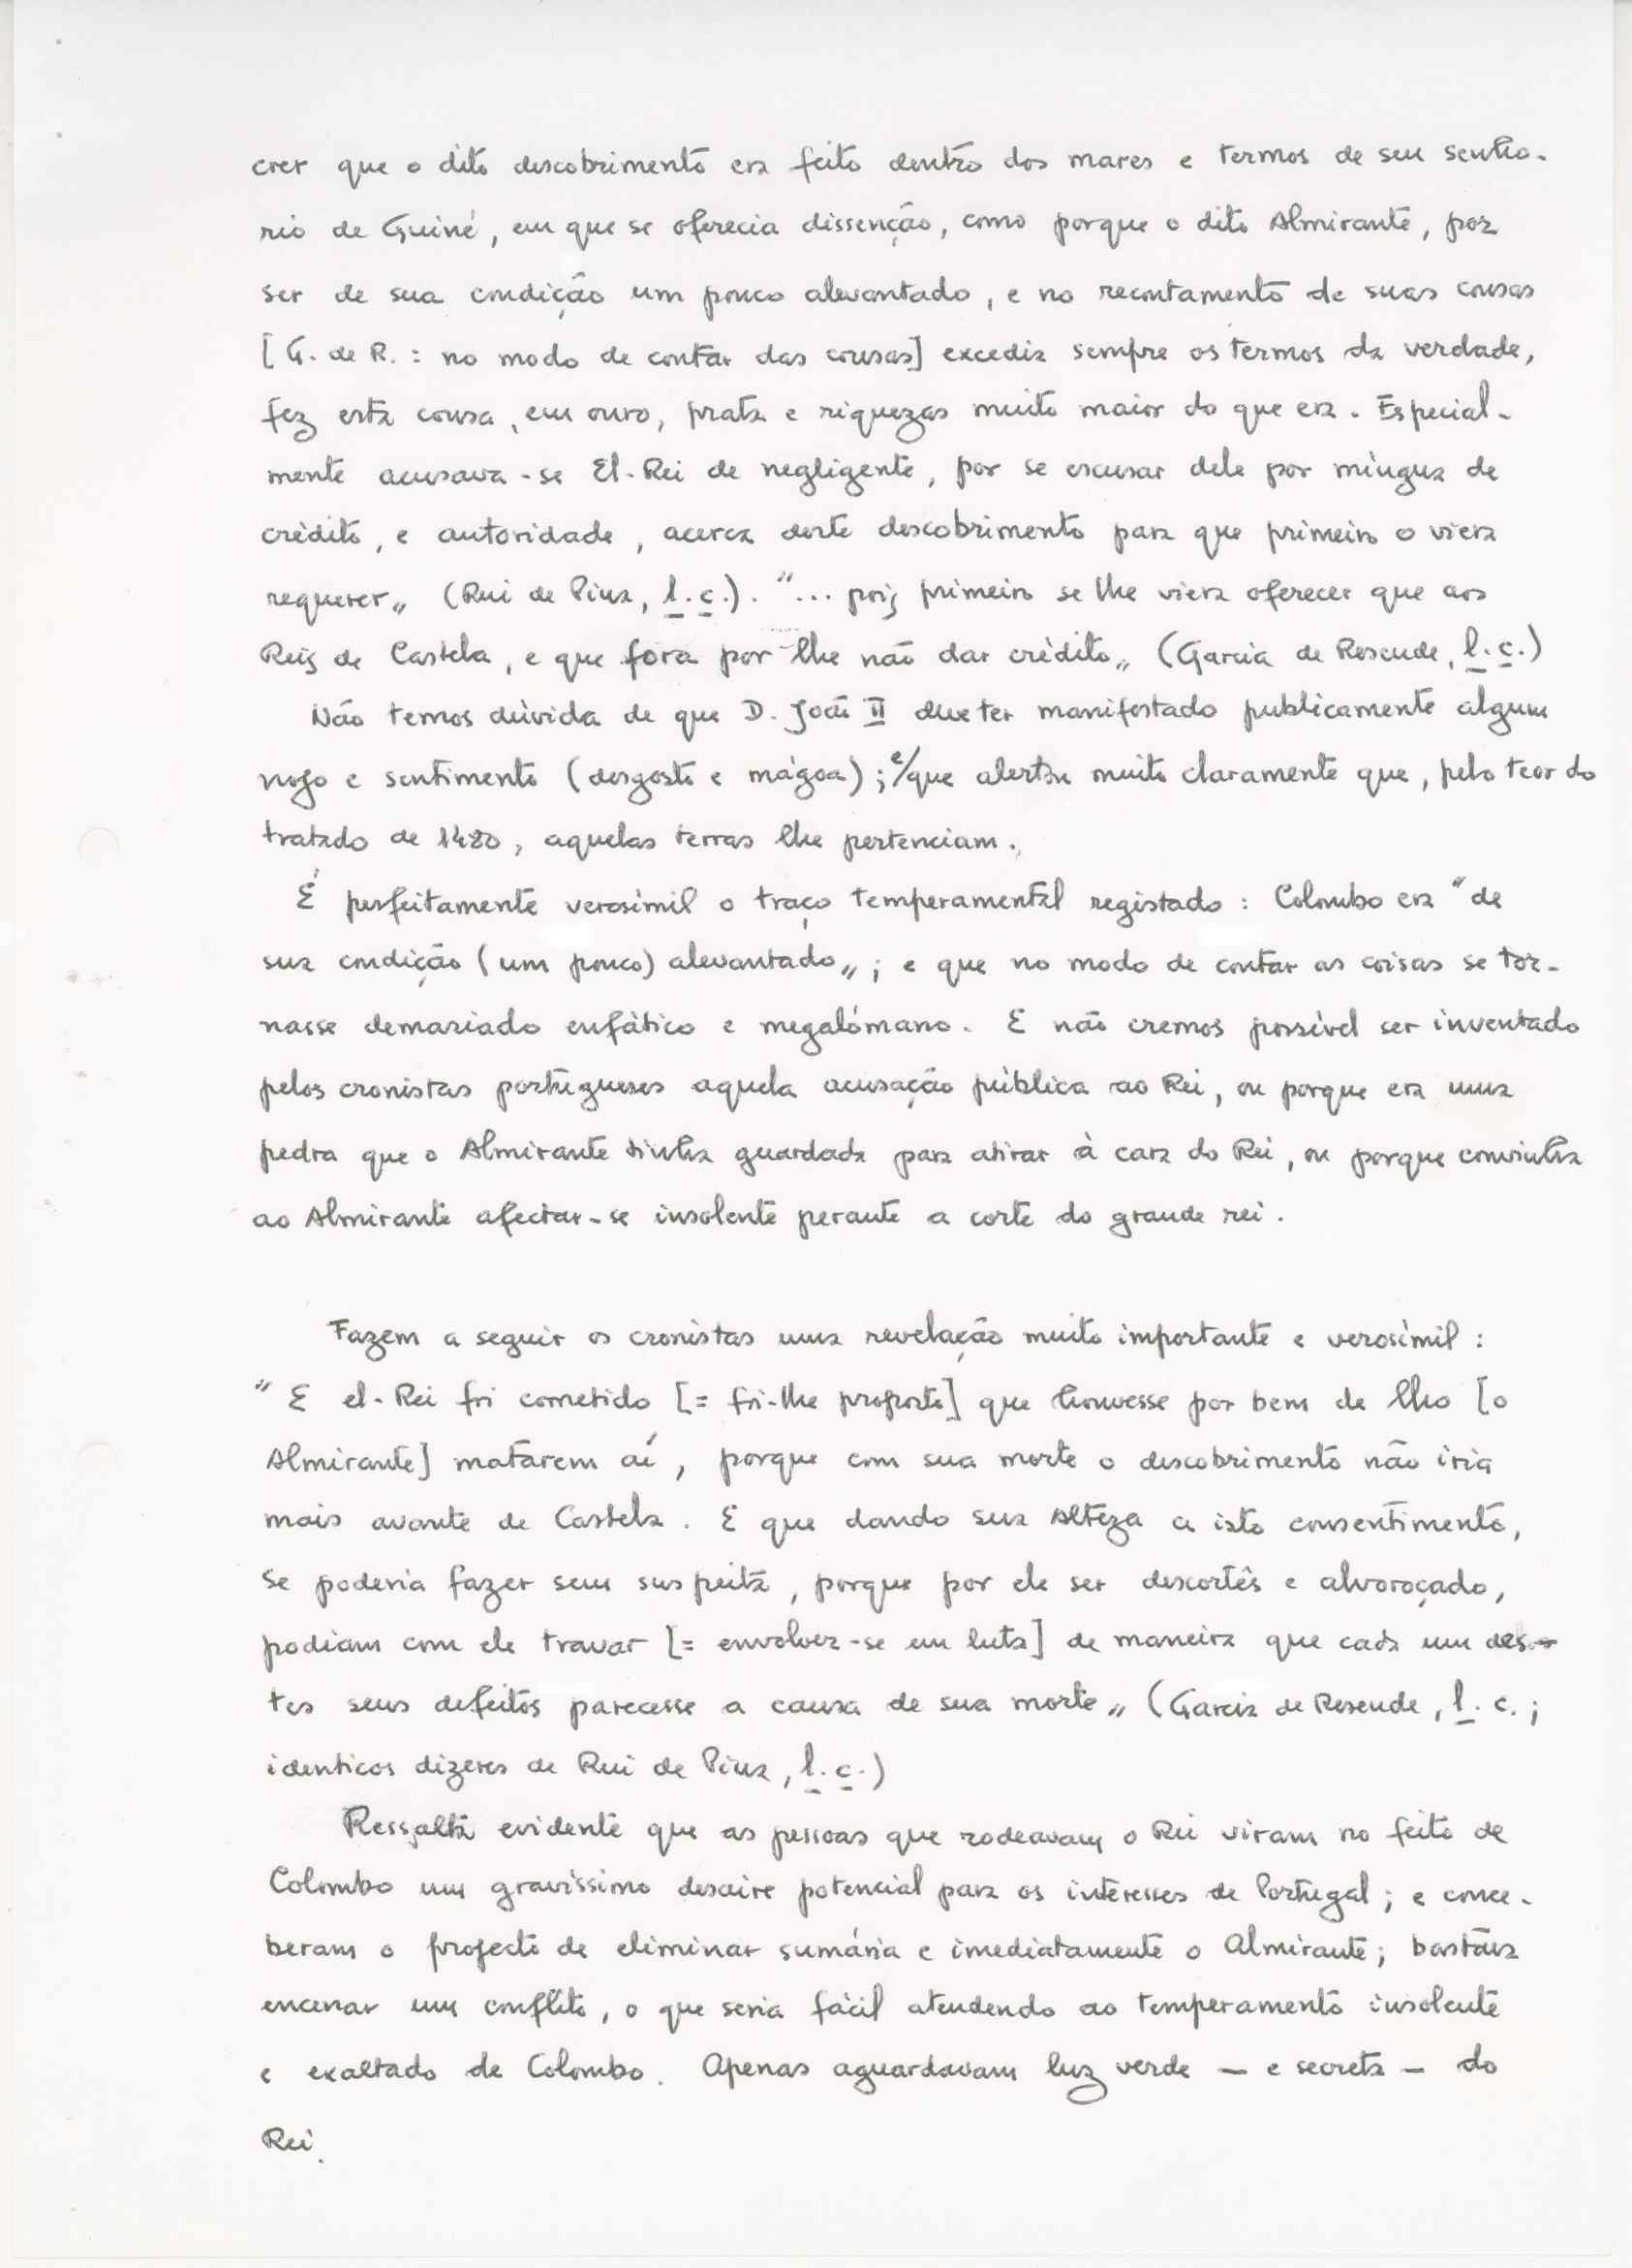 crer que o dito descobrimento era feito dentro dos mares e termos de seu senho-
rio de Guiné, em que se oferecia dissenção, como porque o dito Almirante, por
ser de sua condição um pouco alevantado, e no recontamento de suas cousas
[G. de R. : no modo de contar das cousas] excedia sempre os termos da verdade,
fez esta cousa, em ouro, prata e riquezas muito maior do que era. Especial-
mente acusava-se El-Rei de negligente, por se escusar dele por míngua de
crédito, e autoridade, acerca deste descobrimento para que primeiro o viera
requerer„ (Rui de Pina, l.c.). "... pois primeiro se lhe viera oferecer que aos
Reis de Castela, e que fora por lhe não dar crédito„ (Garcia de Resende, l.c.)
Não temos dúvida de que D. João II deve ter manifestado publicamente algum
nojo e sentimento (desgosto e mágoa); e/que alertou muito claramente que, pelo teor do
tratado de 1480, aquelas terras lhe pertenciam.
É perfeitamente verosímil o traço temperamental registado : Colombo era "de
sua condição (um pouco) alevantado„; e que no modo de contar as coisas se tor-
nasse demasiado enfático e megalómano. E não cremos possível ser inventado
pelos cronistas portugueses aquela acusação pública ao Rei, ou porque era uma
pedra que o Almirante tinha guardada para atirar à cara do Rei, ou porque convinha
ao Almirante afectar-se insolente perante a corte do grande rei.
Fazem a seguir os cronistas uma revelação muito importante e verosímil :
"E el-Rei foi cometido [= foi-lhe proposto] que houvesse por bem de lho [o
Almirante] matarem aí, porque com sua morte o descobrimento não iria
mais avante de Castela. E que dando sua Alteza a isto consentimento,
se poderia fazer sem suspeita, porque por ele ser descortês e alvoroçado,
podiam com ele travar [= envolver-se em luta] de maneira que cada um des-
tes seus defeitos parecesse a causa de sua morte„ (Garcia de Resende, l.c.;
identicos dizeres de Rui de Pina, l.c.)
Ressalta evidente que as pessoas que rodeavam o Rei viram no feito de
Colombo um gravíssimo desaire potencial para os interesses de Portugal; e conce-
beram o projecto de eliminar sumária e imediatamente o Almirante; bastava
encenar um conflito, o que seria fácil atendendo ao temperamento insolente
e exaltado de Colombo. Apenas aguardavam luz verde — e secreta — do
Rei.